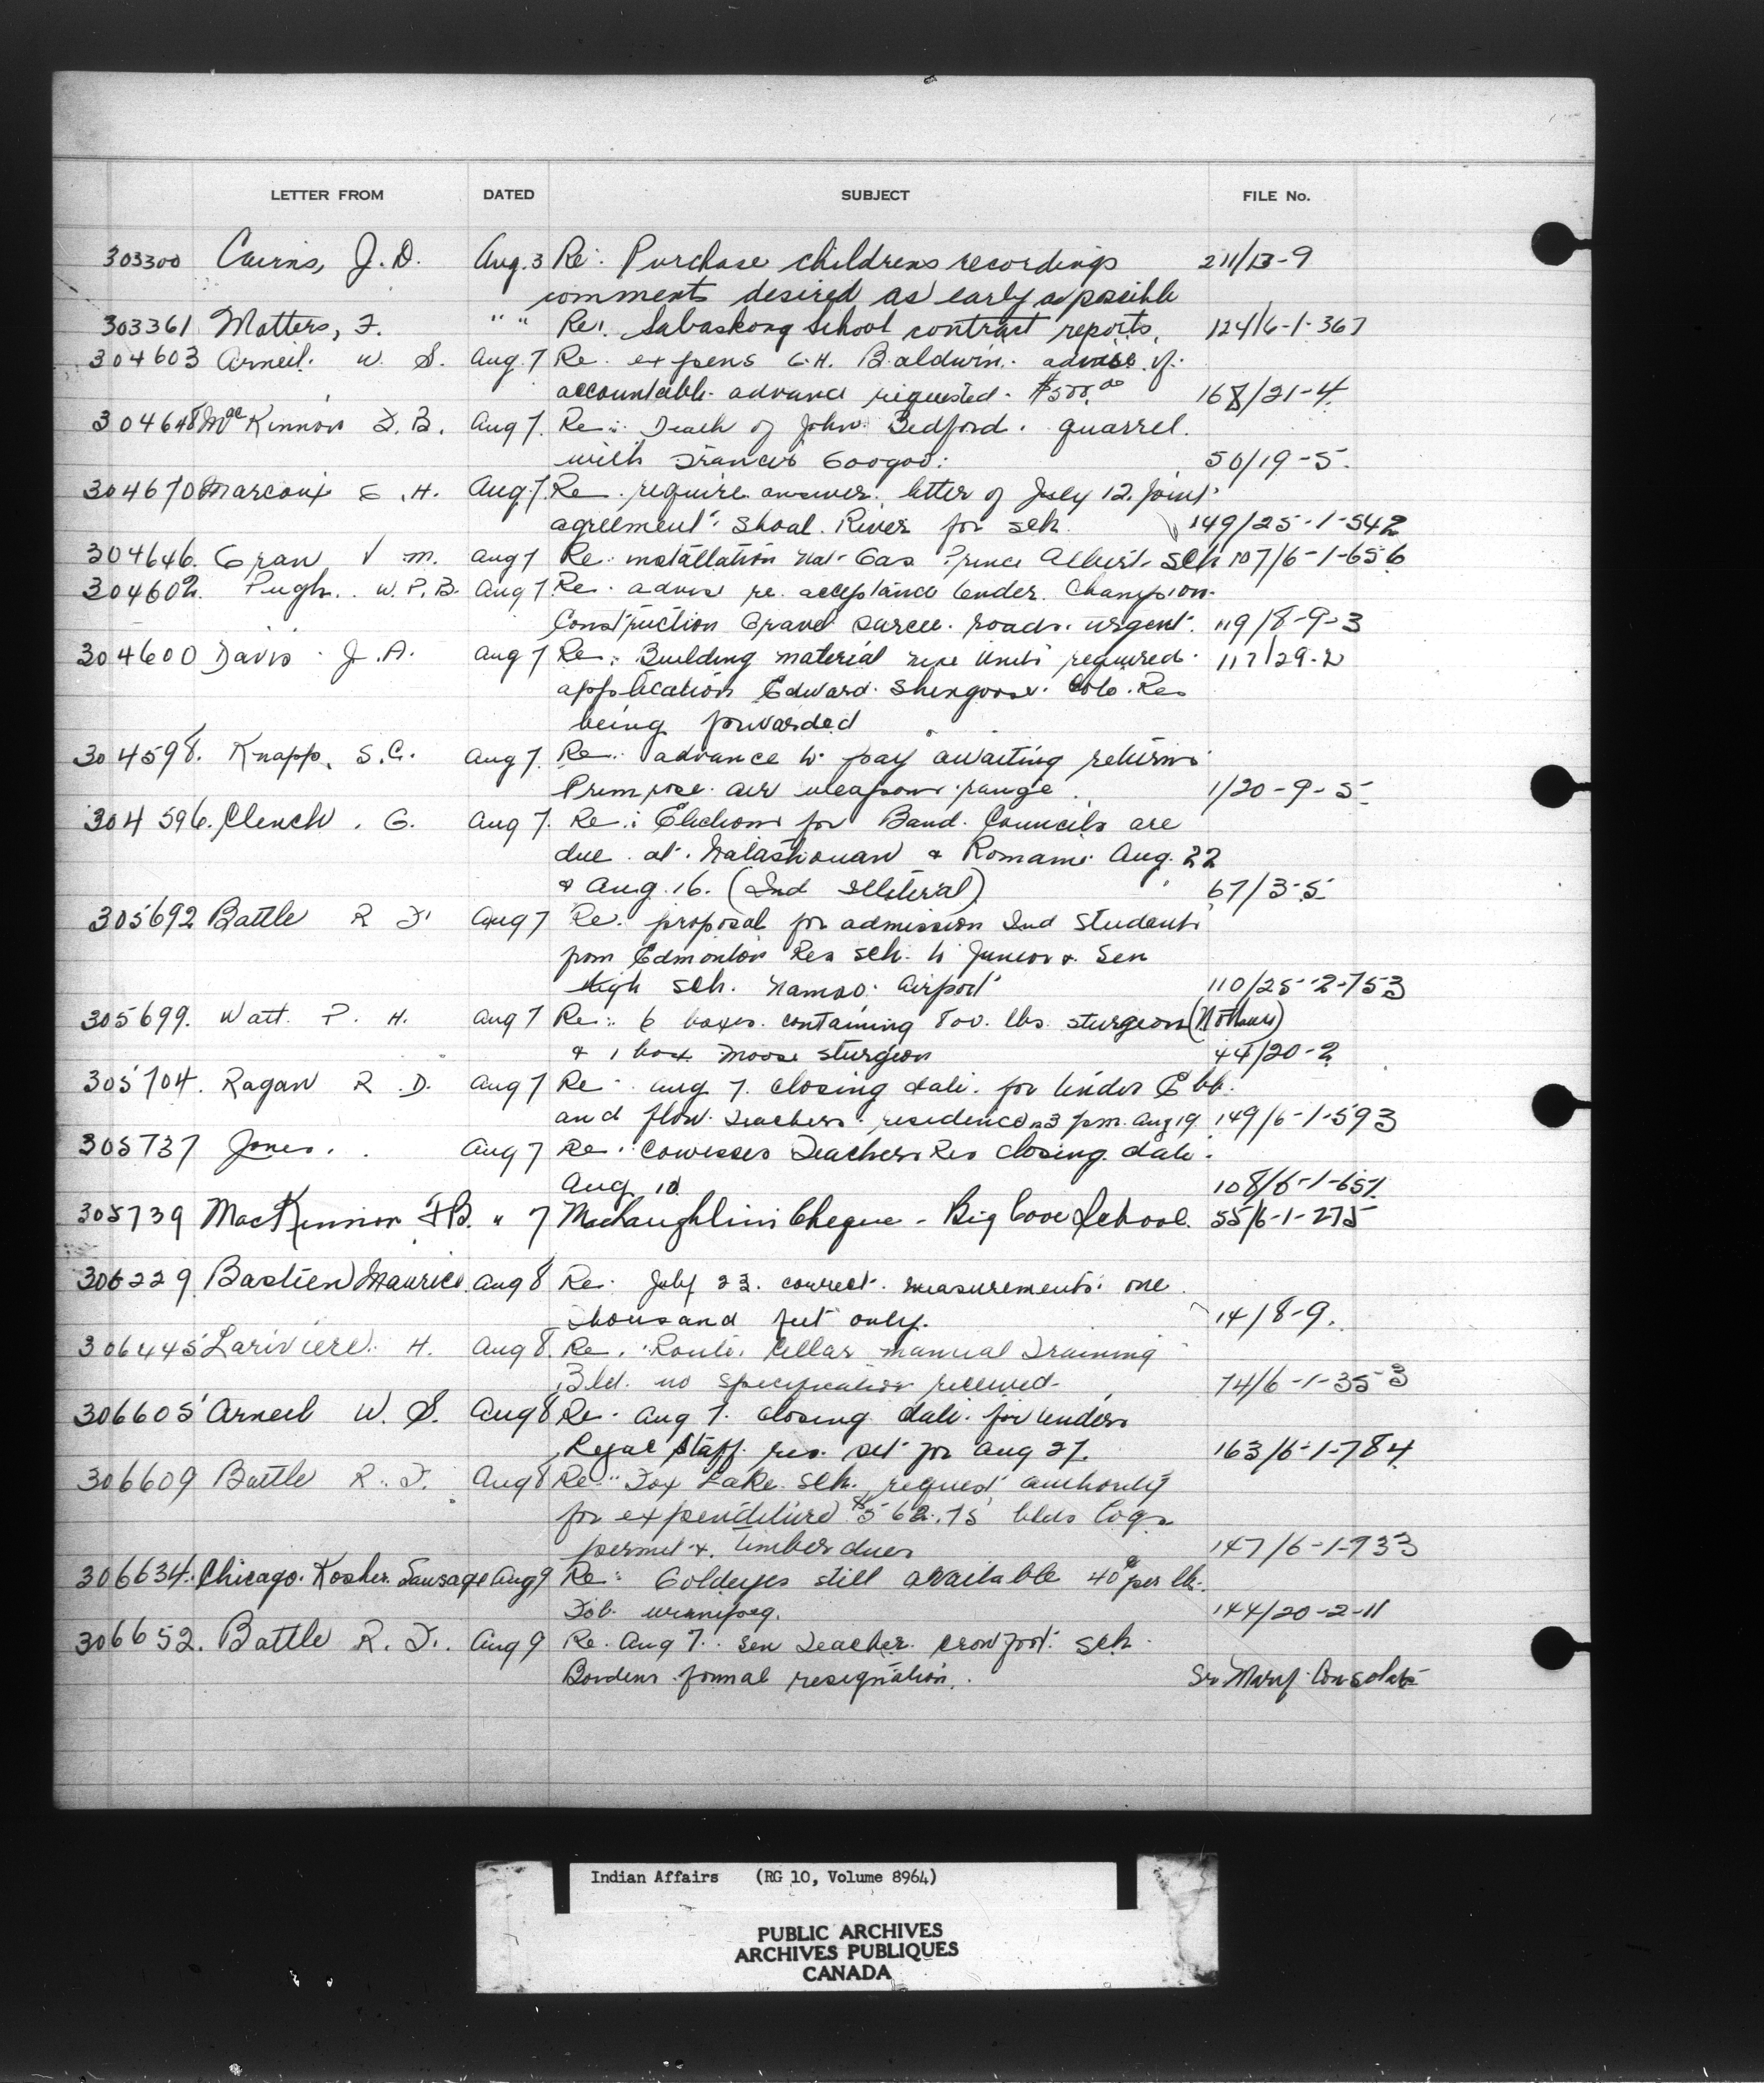 LETTER FROM DATED SUBJECT FILE No.
303300 Cairns, J.D. Aug. 3 Re: Purchase childrens recordings 211/13-9
comments desired as early as possible
303361 Matters, F. " " Re: Sabaskong School contract reports. 124/6-1-367
304603 Arneil. W. S. Aug. 7 Re. expens G.H. Baldwin. of.
accountable advance requested. $500.00 168/21-4
304648 MacKinnon F. B. Aug 7. Re: Death of John Bedford. quarrel.
with Francis Googoo. 50/19-5.
304670 Marcoux E. H. Aug. 7. Re. require answer. letter of July 12. joint
agreement. Shoal River for sch. 149/25-1-542
304646. Gran V M. Aug 7 Re. installation nat. Gas Prince Albert. Sch 107/6-1-656
304602. Pugh. W. P. B. Aug 7 Re. advise re. acceptance tender. Champion.
Construction Gravel Sarcee. roads. urgent. 119/8-9-3
304600 Davis J. A. Aug 7 Re: Building material units required. 117/29-2
application Edward. Shingoose. Cote. Res
being forwarded
304598. Knapp, S.C. Aug 7. Re: advance to pay awaiting returns
Primrose air weapons range. 1/20-9-5
304596. Clench. G. Aug 7. Re: Elections for Band. Councils are
due at. Natashquan & Romaine Aug. 22
& Aug. 16. (Ind Illiteral) 67/3-5
305692 Battle R F Aug 7 Re. proposal for admission Ind Students
from Edmonton Res sch. to Junior & Sen
High sch. Namao. Airport 110/25-2-753
305699. Watt. P. H. Aug 7 Re: 6 boxes. containing 800. lbs. sturgeon
& 1 box Moose sturgeon 44/20-2
305704. Ragan R. D. Aug 7 Re. Aug 7. closing date. for tender Ebb.
and flow. teachers. residence 3 p.m. Aug 19 149/6-1-593
305737 Jones. Aug 7 Re: Cowesses Teachers Res closing date.
Aug 10. 108/6-1-651
305739 MacKinnon F.B. " 7 MacLaughlin's Cheque - Big Cove School. 55/6-1-275
306229 Bastien Maurice Aug 8 Re. July 23. correct. measurements. one
thousand feet only. 14/8-9.
306445 Lariviere. H. Aug 8. Re. cellar manual Training
Bld. no specification received 74/6-1-353
306605 Arneil W. S. Aug 8 Re. Aug 7. closing date. for tenders
staff. res. set for Aug 27. 163/6-1-784
306609 Battle R. F. Aug 8 Re. Fox Lake. Sch. request authority
for expenditure $562.75 logs
permit & timber dues 147/6-1-933
306634. Chicago. Kosher. Sausage Aug 9 Re: Goldeyes still available 40¢ per lb.
Fob. Winnipeg. 144/20-2-11
306652. Battle R. F. Aug 9 Re. Aug 7. Sen Teacher. Crowfoot Sch.
formal resignation.
Indian Affairs (RG 10, Volume 8964)
PUBLIC ARCHIVES
ARCHIVES PUBLIQUES
CANADA